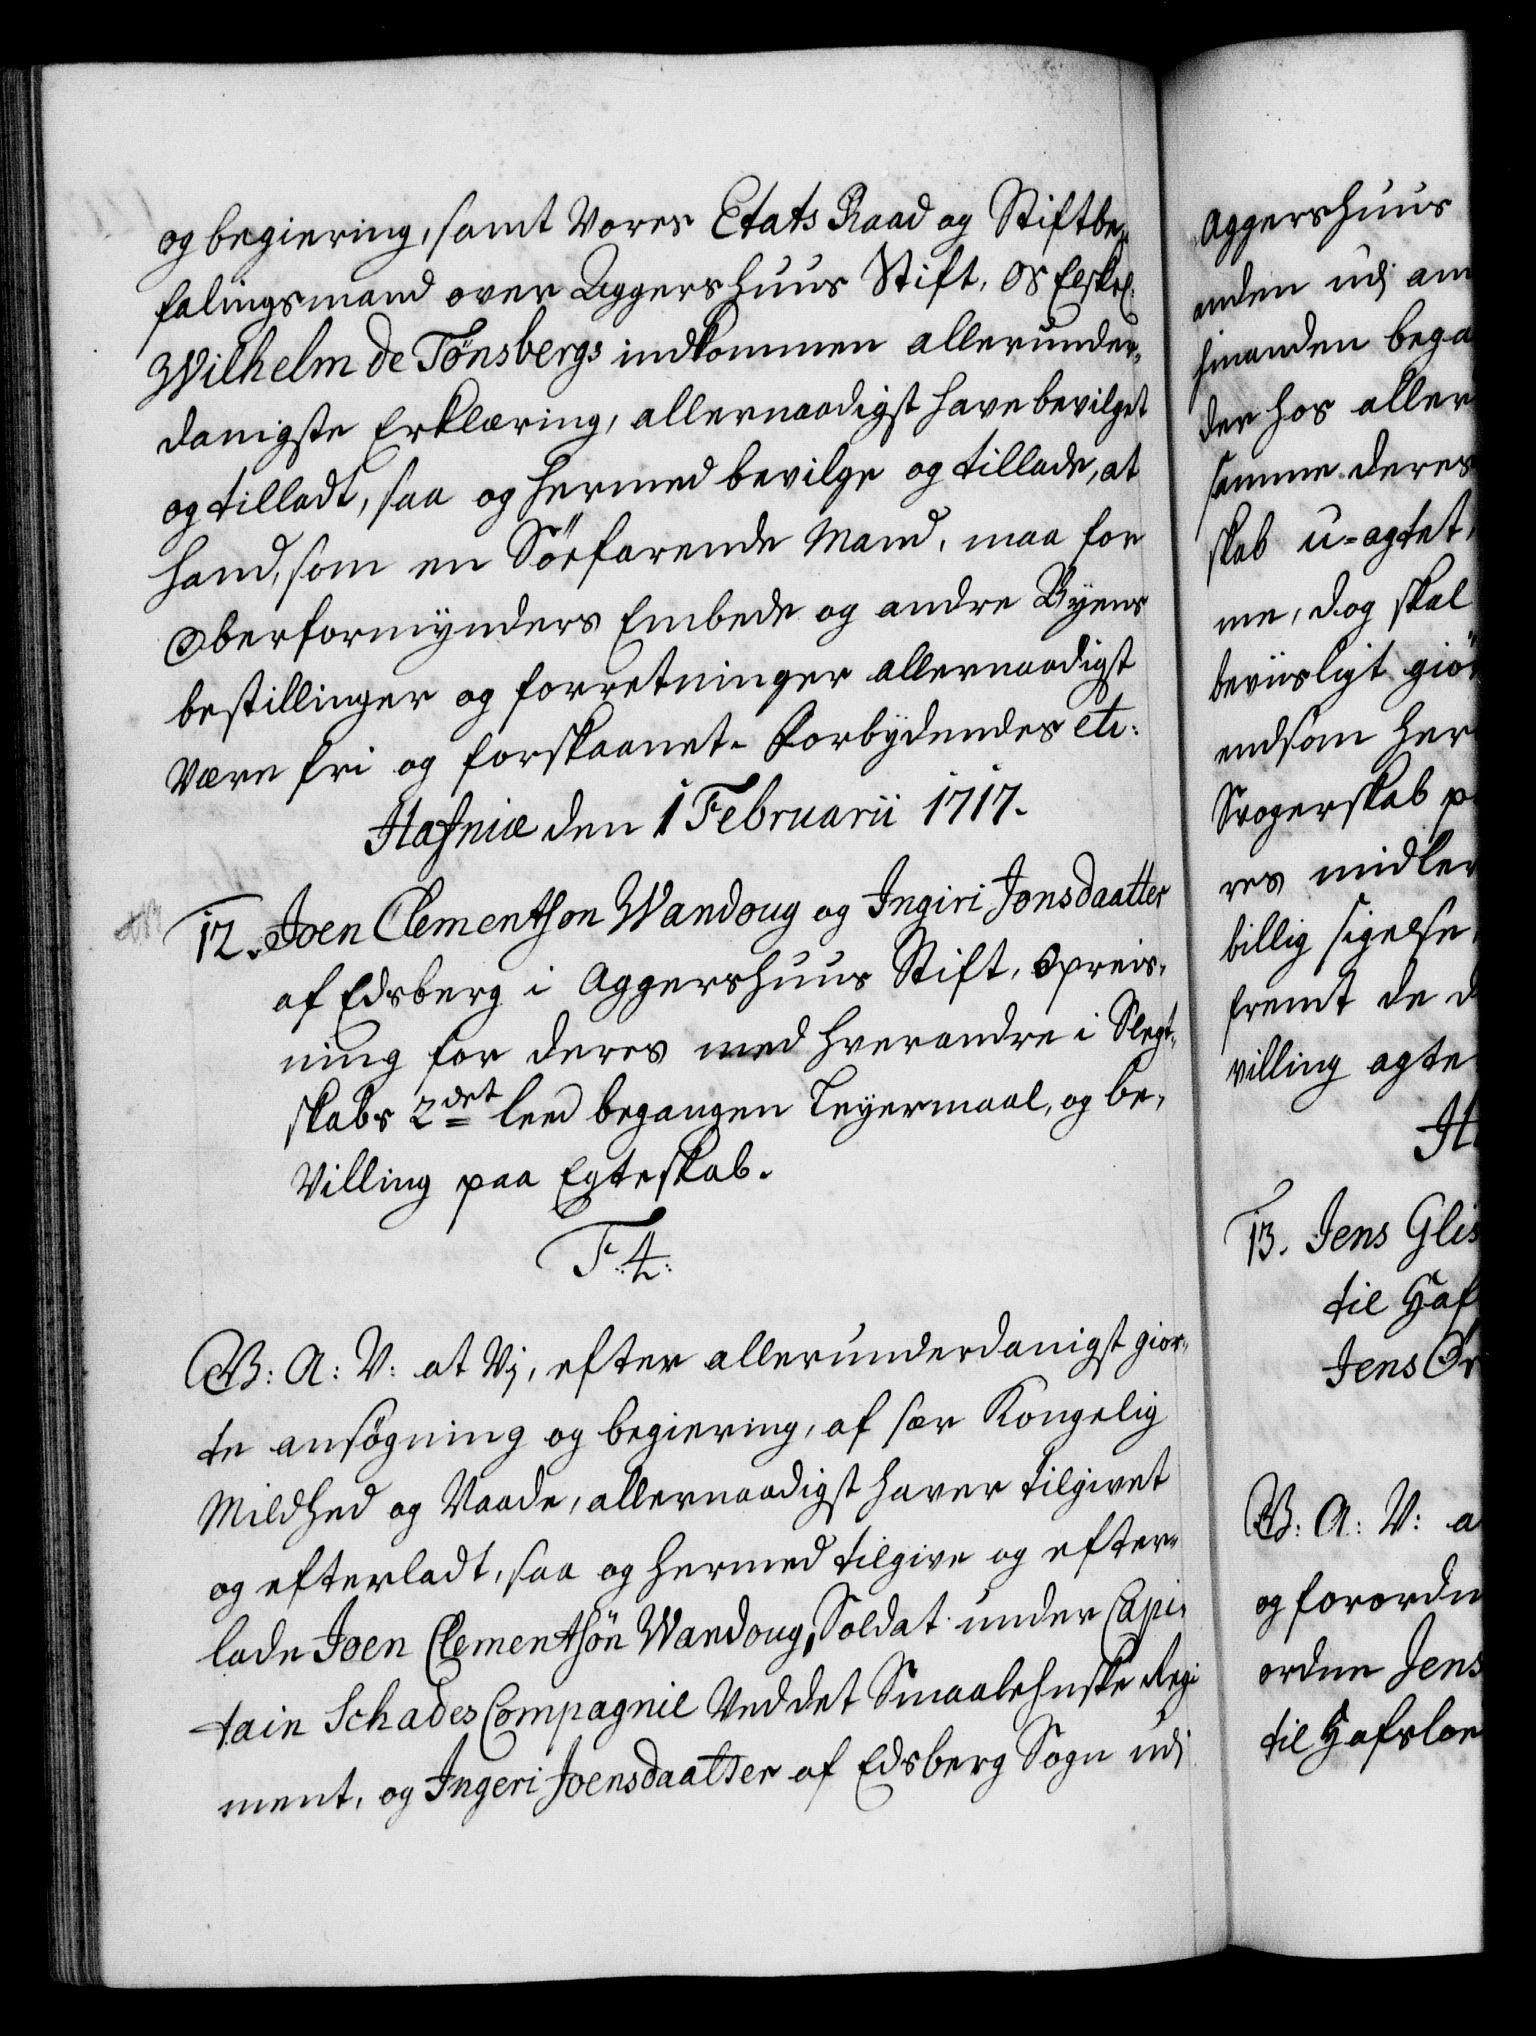 og begiering, samt Vores Etats Raad og Stiftbe-
falingsmand over Aggershuus Stift, Os Elskel:
Wilhelm de Tønsbergs indkommen allerunder-
danigste Erklæring, allernaadigst have bevilget
og tilladt, saa og hermed bevilge og tillade, at
hand, som en Söefarende Mand, maa for
Oberformynders Embede og andre Byens
bestillinger og forretninger allernaadigst
være fri og forskaanet. Forbydendes etc:
Hafniæ den 1 Februarii 1717.
12. Joen Clementson Wandoug og Ingiri Jonsdaatter
af Edsberg i Aggershuus Stift, Opreis-
ning for deres med hverandre i Slegt-
skabs 2det leed begangen Leyermaal, og be-
villing paa Egteskab.
F. 4.
G. A: V: at Vj, efter allerunderdanigst gior-
te ansøgning og begiering, af sær Kongelig
Mildhed og Naade, allernaadigst haver tilgivet
og efterladt, saa og hermed tilgive og efter-
lade Joen Clementsön Wandoug, Soldat under Capi-
tain Schades Compagnie ved det Smaalehnske Regi-
ment, og Ingeri Joensdaatter af Edsberg Sogn udj
Aggershuus
anden udj am
hinanden bega
der hos aller
samme deres
skab u-agtet,
me, dog skal
beviisligt giö
endsom her
Svogerskab p
res midler
billig sigelse,
fremt de d
villing agte
H
13. Jens Glis
til Haf
Jens Ør
G: A: V: a
og forordn
ordne Jens
til Hafsloe